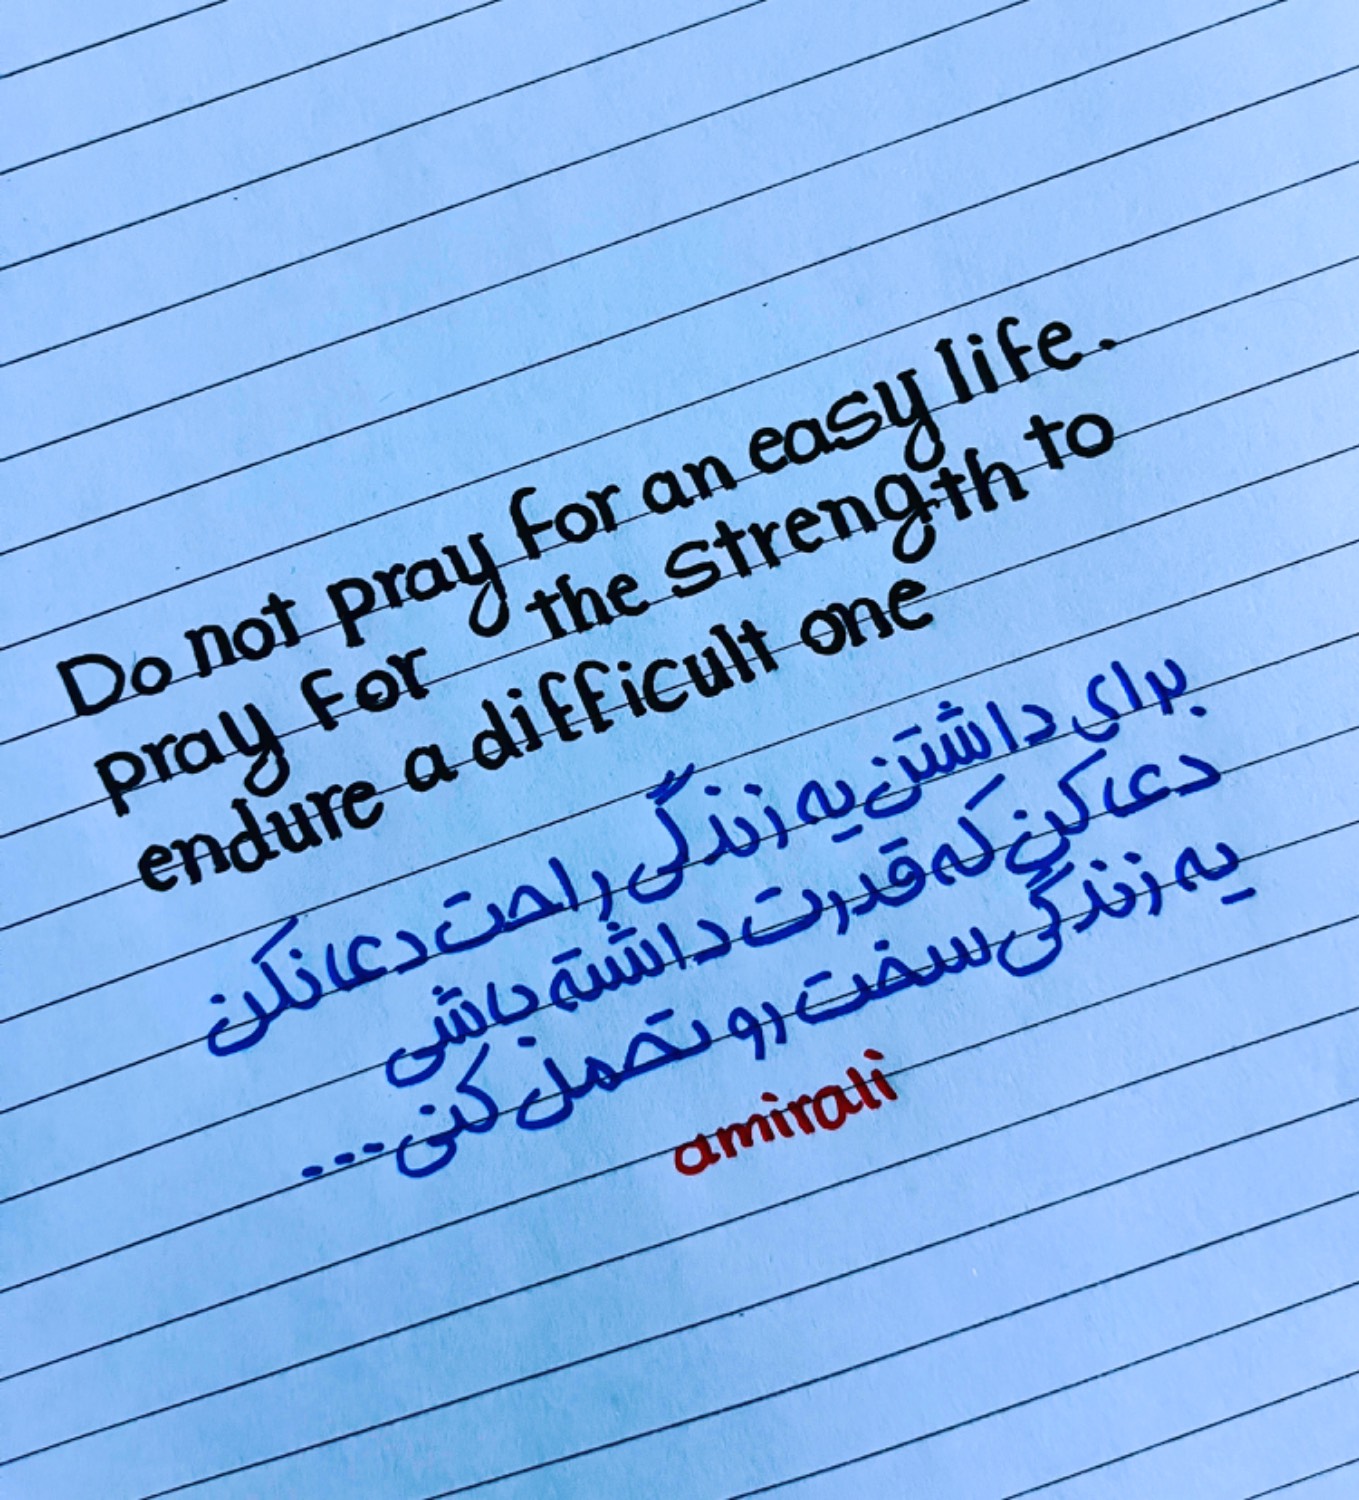 Do not pray for an easy life.
pray for the strength to
endure a difficult one
برای داشتن یه زندگی راحت دعا نکن
دعا کن که قدرت داشته باشی
یه زندگی سخت رو تحمل کنی...
amirali